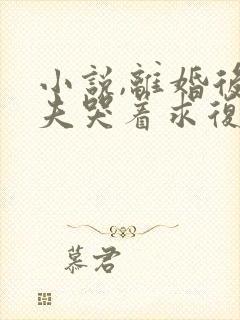 小說,離婚後
夫哭着求復
慕君